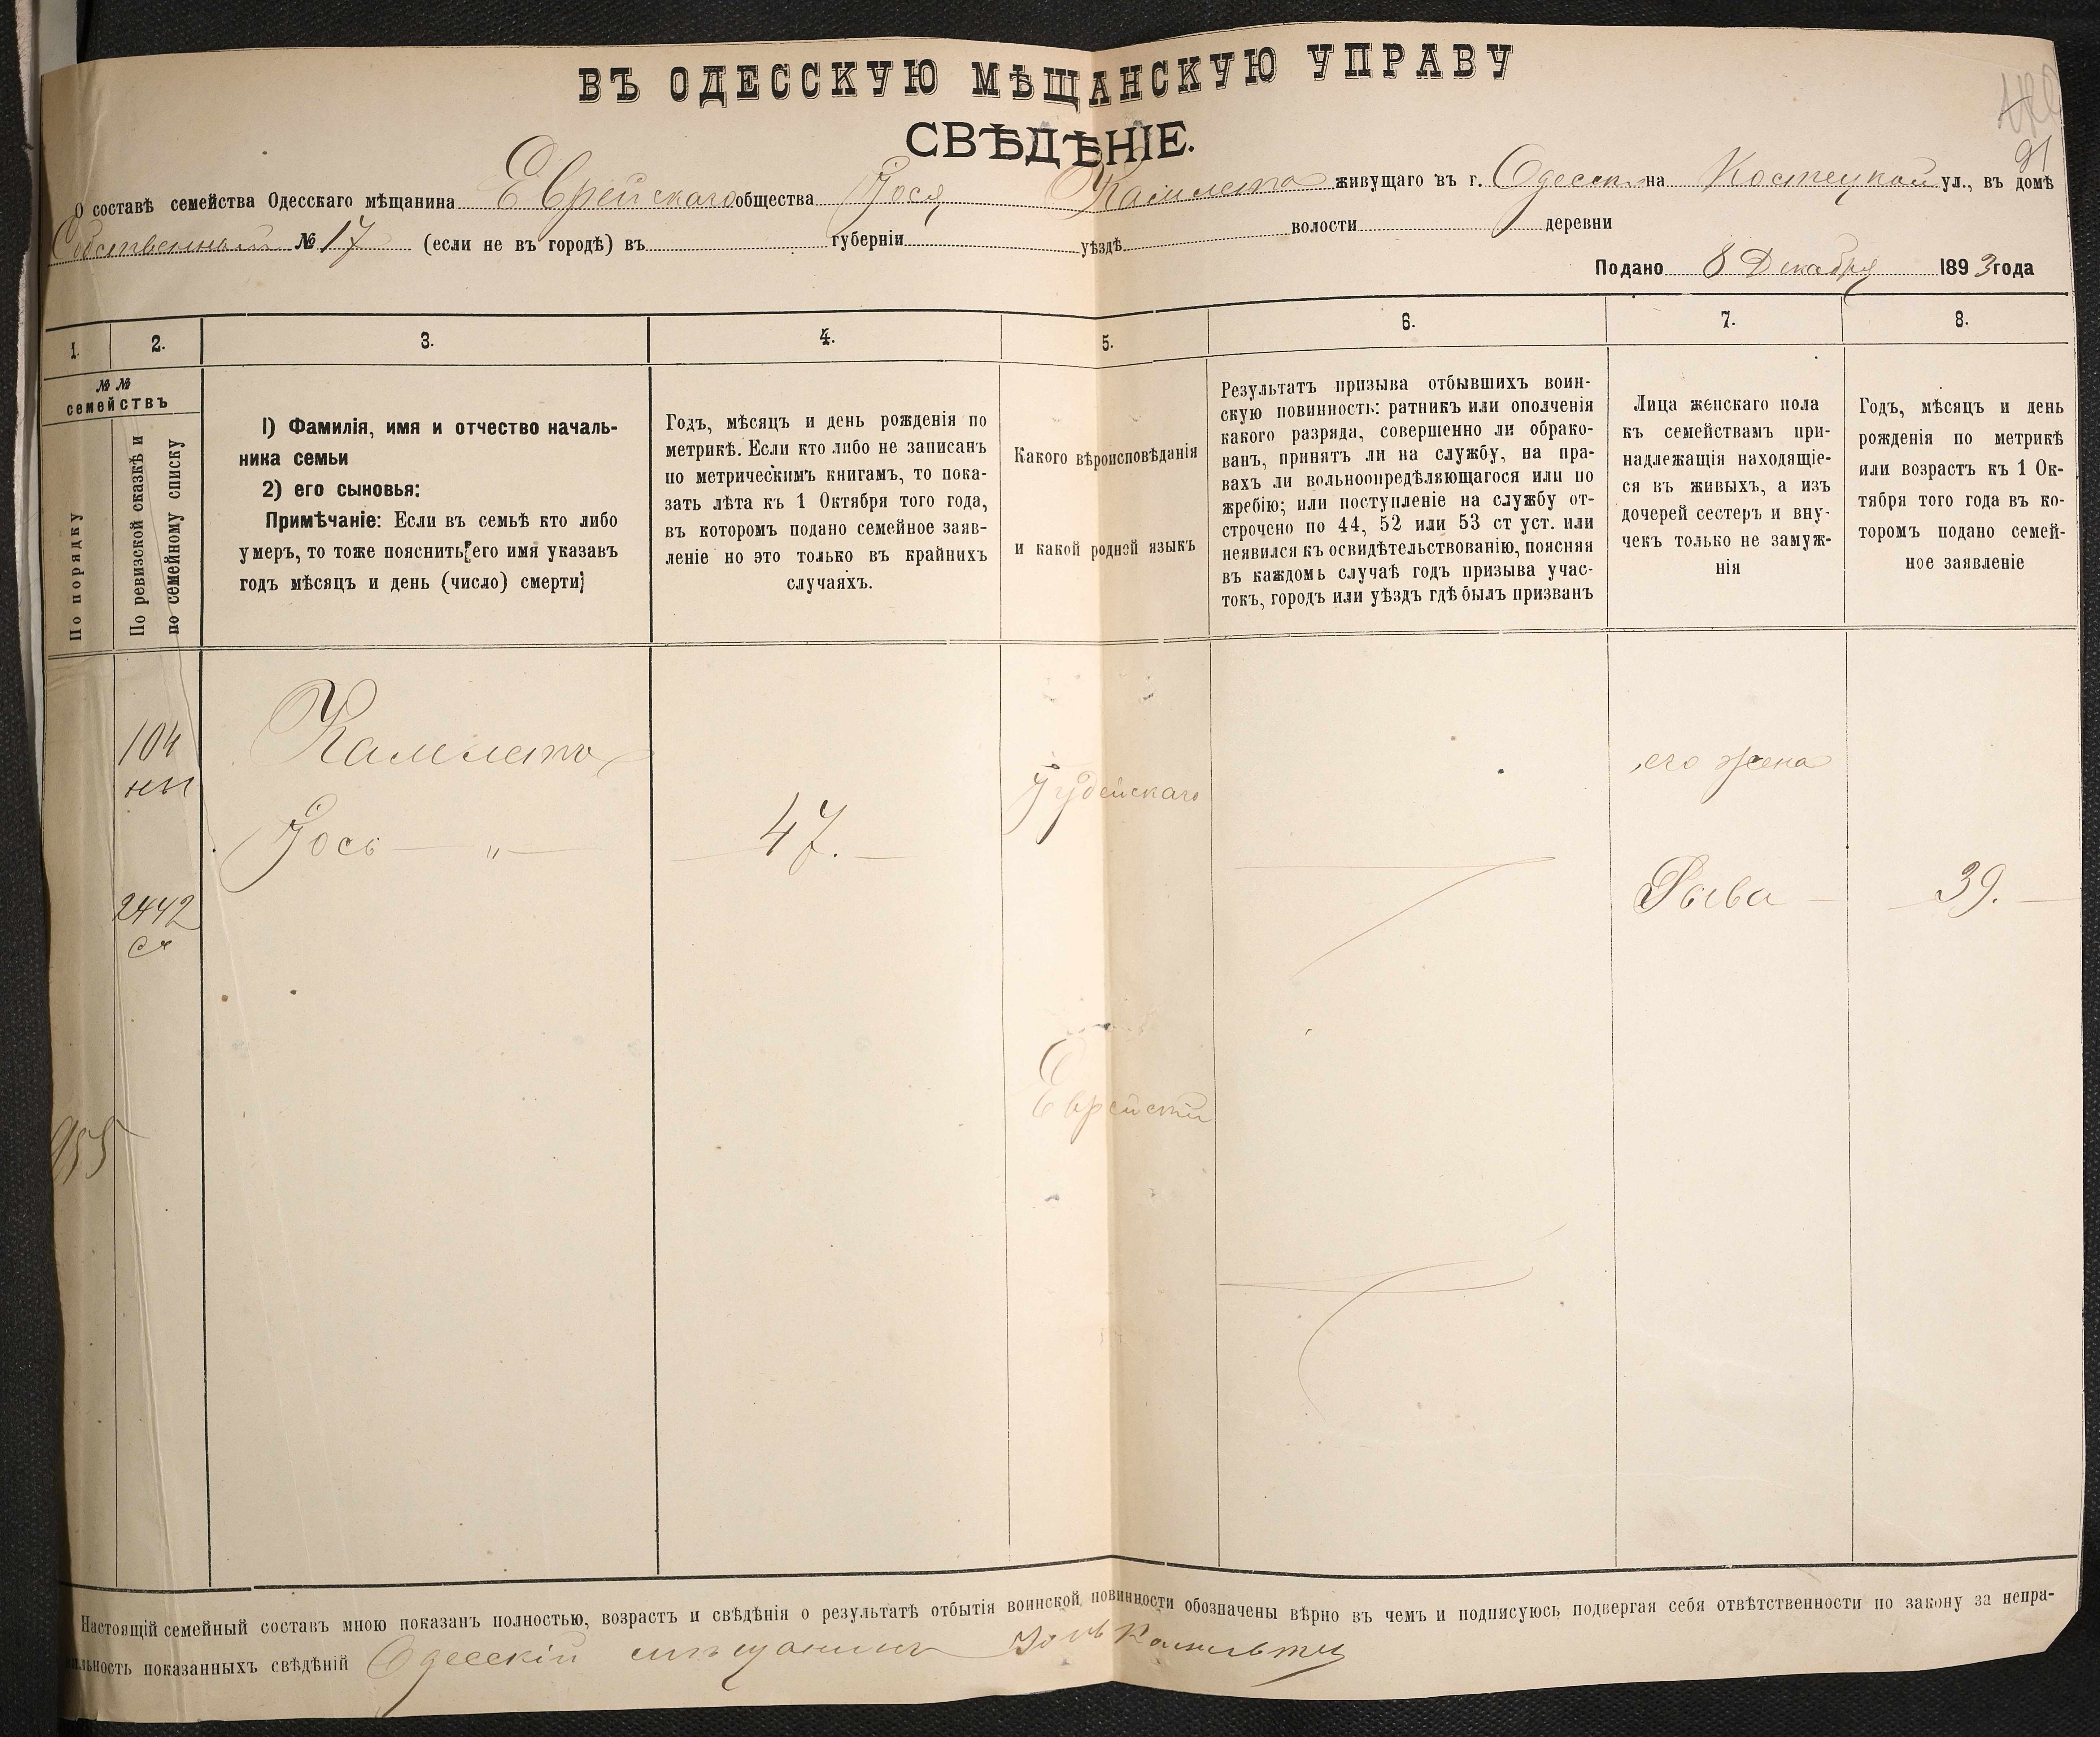 ВЪ ОДЕССКУЮ МѢЩАНСКУЮ УПРАВУ
СВѢДѢНІЕ.
91
О составѣ семейства Одесскаго мѣщанина Еврейскаго общества Іося живущаго въ г. Одессѣ на Костецкой ул., въ домѣ
Собственный № 17 (если не въ городѣ) въ губерніи уѣздѣ волости деревни
Подано 8 Декабря 1893 года
1. 2. 3. 4. 5. 6. 7. 8.
№ №
семействъ
По порядку
По ревизской сказкѣ и
по семейному списку
1) Фамилія, имя и отчество началь-
ника семьи
2) его сыновья:
Примѣчаніе: Если въ семьѣ кто либо
умеръ, то тоже пояснить его имя указавъ
годъ мѣсяцъ и день (число) смерти
Годъ, мѣсяцъ и день рожденія по
метрикѣ. Если кто либо не записанъ
по метрическимъ книгамъ, то пока-
зать лѣта къ 1 Октября того года,
въ которомъ подано семейное заяв-
леніе но это только въ крайнихъ
случаяхъ.
Какого вѣроисповѣданія
и какой родной языкъ
Результатъ призыва отбывшихъ воин-
скую повинность: ратникъ или ополченія
какого разряда, совершенно ли обрако-
ванъ, принятъ ли на службу, на пра-
вахъ ли вольноопредѣляющагося или по
жребію; или поступленіе на службу от-
строчено по 44, 52 или 53 ст уст. или
неявился къ освидѣтельствованію, поясняя
въ каждомъ случаѣ годъ призыва учас-
токъ, городъ или уѣздъ гдѣ былъ призванъ
Лица женскаго пола
къ семействамъ при-
надлежащія находящіе-
ся въ живыхъ, а изъ
дочерей сестеръ и вну-
чекъ только не замуж-
нія
Годъ, мѣсяцъ и день
рожденія по метрикѣ
или возрастъ къ 1 Ок-
тября того года въ ко-
торомъ подано семей-
ное заявленіе
104
2442
955
Іось — " —
47.
Іудейскаго
Еврейскій
его жена
Рыва
39.
Настоящій семейный составъ мною показанъ полностью, возрастъ и свѣдѣнія о результатѣ отбытія воинской повинности обозначены вѣрно въ чемъ и подписуюсь подвергая себя отвѣтственности по закону за непра-
вильность показанныхъ свѣдѣній Одесскій мѣщанинъ